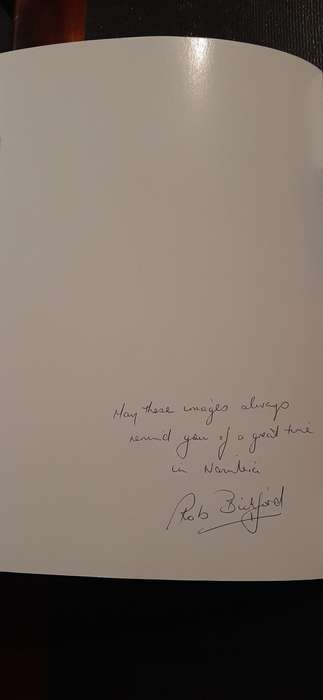 May these images always
remind you of a great time
in Namibia
Rob Bickford